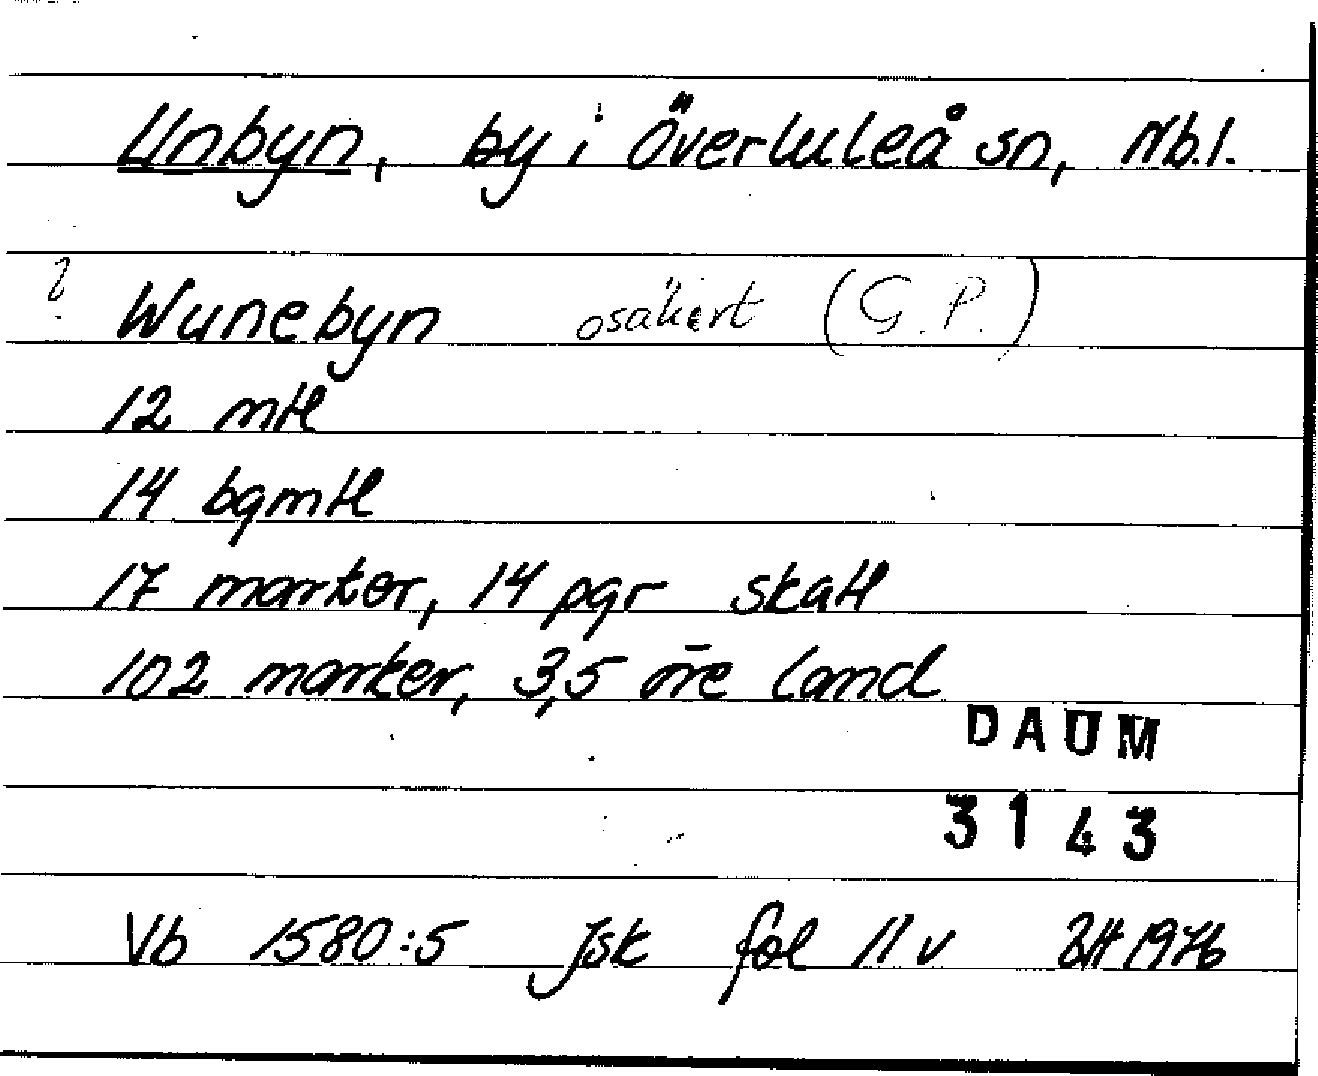 Unbyn, by i Överluleå sn, Nb.l.
? Wunebyn osäkert (G.P.)
12 mtl
14 bgmtl
17 marker, 14 pgr skatt
102 marker, 3,5 öre land
DAUM
3143
Vb 1580:5 Jsk fol 11 v 1976